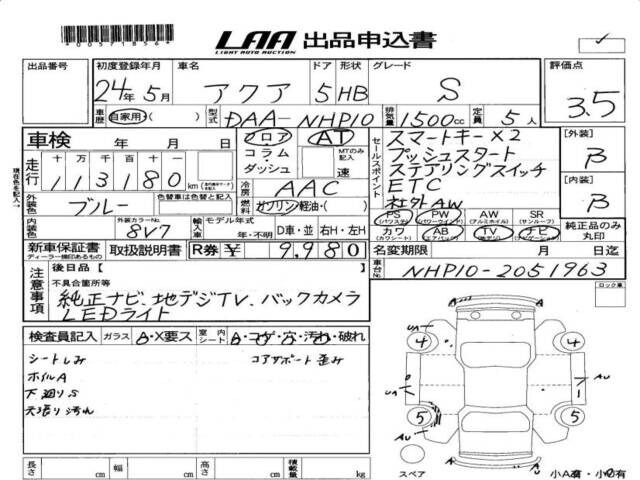 *0057185640*
LAA 出品申込書
LIGHT AUTO AUCTION
出品番号 初度登録年月 車名 ドア 形状 グレード 評価点
24年5月 アクア 5 HB S 3.5
車歴 自家用・( ) 型式 DAA-NHP10 排気量 1500cc 定員 5人
車検 年 月 日 フロア AT セールスポイント スマートキー×2 [外装]
十 万 千 百 十 一 コラム・ダッシュ MTのみ記入 速 プッシュスタート B
走行 113180 km ステアリングスイッチ [内装]
冷房 AAC ETC B
外装色 ブルー 色替車は色替と記入 燃料 ガソリン 軽油・( ) 社外AW
PS (パワステ) PW (パワーウインド) AW (アルミホイル) SR (サンルーフ) 純正品のみ丸印
内装色 外装カラーNo. 8V7 輸入車 モデル年式 年・不明 D車・並 右H・左H カワ (カワシート) AB (エアバッグ) TV ナビ
新車保証書 取扱説明書 R券 ¥ 9,980 名変期限 月 日迄
ディーラー捺印あるもの
車台No. NHP10-2051963
注意事項 後日品【 】
不具合箇所等
純正ナビ、地デジTV、バックカメラ
LEDライト
ロック車
検査員記入 ガラス A・X要ス 室内シート A・コゲ・穴・汚れ・破れ
シートしみ コアサポート歪み
ホイルA
下廻りS
天張り汚れ
4 4
5 5
スペア
長さ cm 幅 cm 高さ cm 積載量 kg 小A有・小U有
現在色を記入→